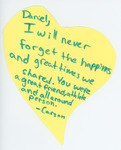 Daniel,
I will never
forget the happines
and great times we
shared. You were
a great friend, athlete
and all around
person.
-Carson